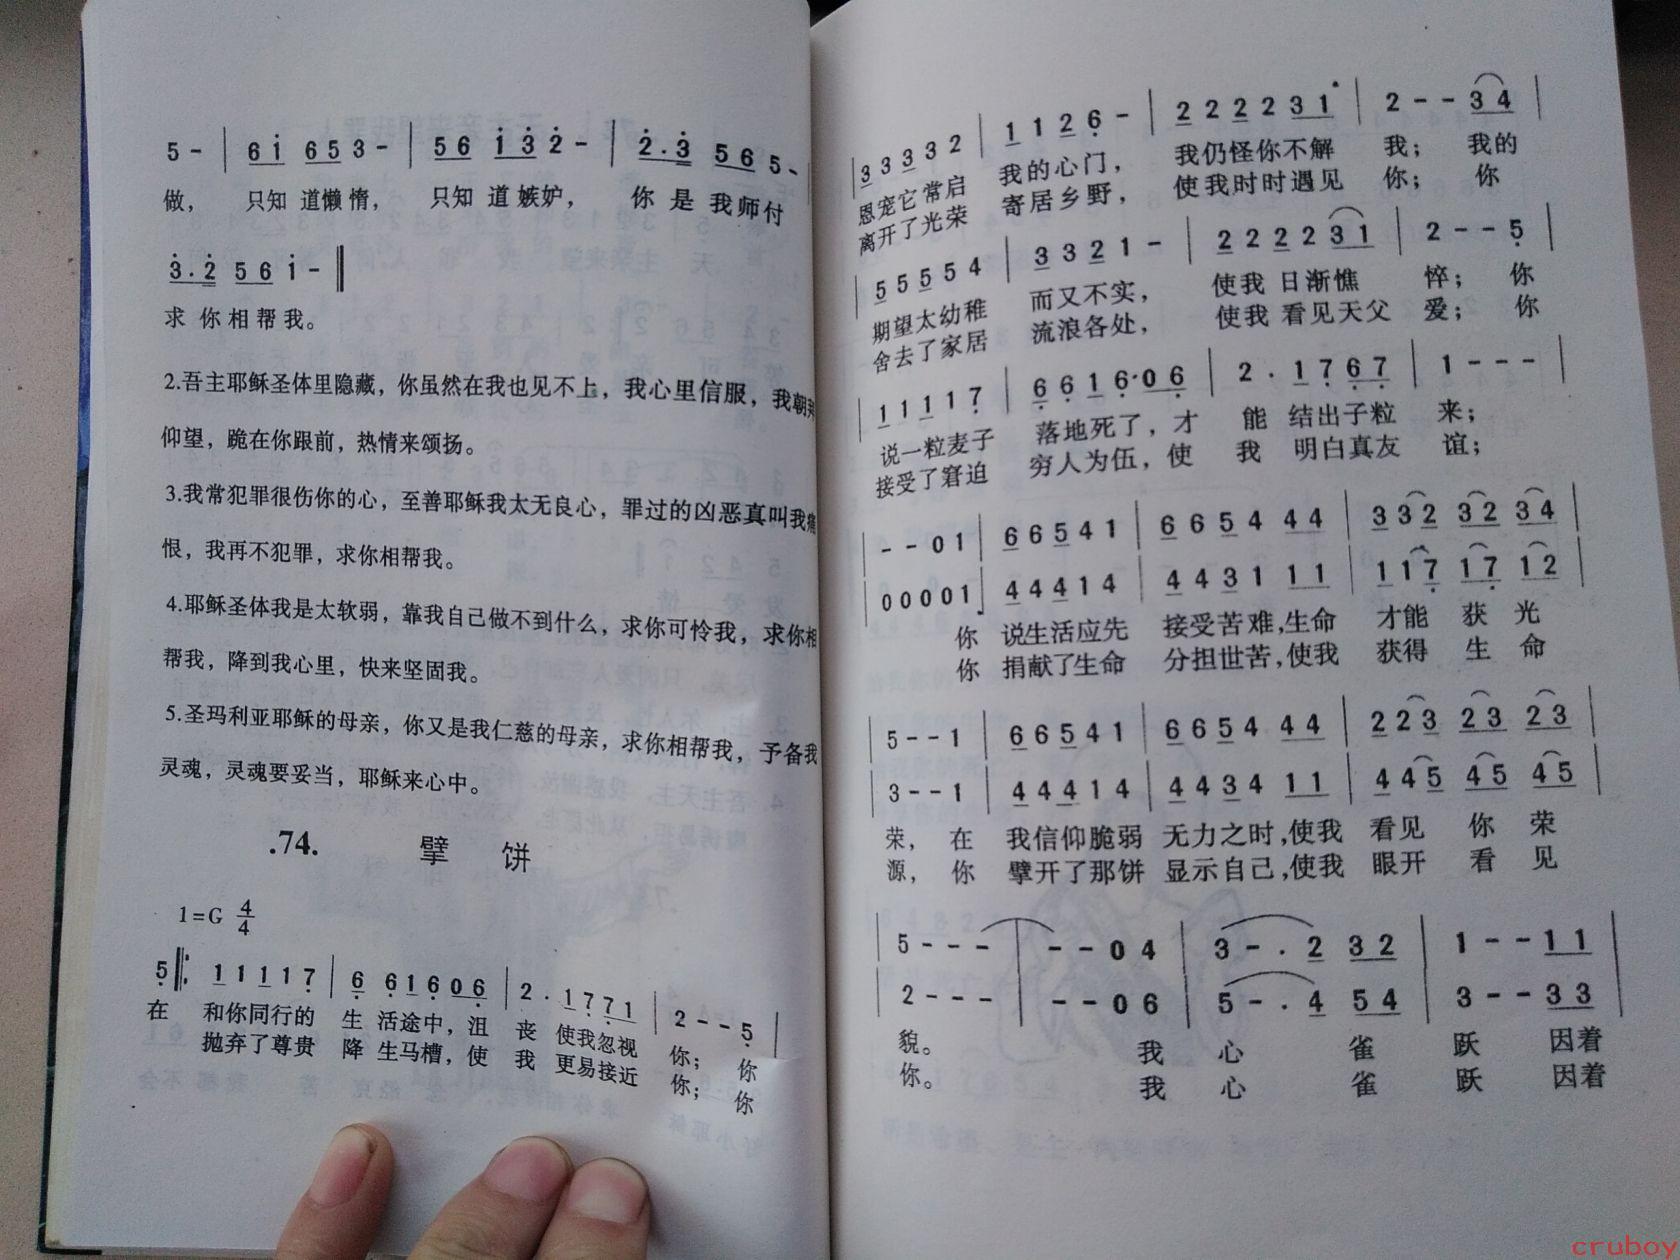 5 - | 6 i 6 5 3 - | 5 6 i 3 2 - | 2 . 3 5 6 5 -
做， 只知 道懒 惰， 只知 道 嫉妒， 你 是 我 师 付
3 . 2 5 6 i -
求 你 相 帮 我。
2.吾主耶稣圣体里隐藏，你虽然在我也见不上，我心里信服，我朝
仰望，跪在你跟前，热情来颂扬。
3.我常犯罪很伤你的心，至善耶稣我太无良心，罪过的凶恶真叫我痛
恨，我再不犯罪，求你相帮我。
4.耶稣圣体我是太软弱，靠我自己做不到什么，求你可怜我，求你相
帮我，降到我心里，快来坚固我。
5.圣玛利亚耶稣的母亲，你又是我仁慈的母亲，求你相帮我，予备我
灵魂，灵魂要妥当，耶稣来心中。
.74. 擘 饼
1=G 4/4
5 ‖: 1 1 1 1 7 | 6 6 1 6 0 6 | 2 . 1 7 7 1 | 2 - - 5 |
在 和你同行的 生 活途中，沮 丧 使我忽视 你； 你
抛弃了尊贵 降 生马槽，使 我 更易接近 你； 你
| 3 3 3 3 2 | 1 1 2 6 - | 2 2 2 2 3 1 | 2 - - 3 4 |
恩宠它常启 我的心门， 我仍怪你不解 我； 我的
离开了光荣 寄居乡野， 使我时时遇见 你； 你
| 5 5 5 5 4 | 3 3 2 1 - | 2 2 2 2 3 1 | 2 - - 5 |
期望太幼稚 而又不实， 使我 日渐憔 悴； 你
舍去了家居 流浪各处， 使我 看见天父 爱； 你
| 1 1 1 1 7 | 6 6 1 6 · 0 6 | 2 . 1 7 6 7 | 1 - - - |
说一粒麦子 落地死了，才 能 结出子粒 来；
接受了窘迫 穷人为伍，使 我 明白真友 谊；
| - - 0 1 | 6 6 5 4 1 | 6 6 5 4 4 4 | 3 3 2 3 2 3 4 |
| 0 0 0 0 1 | 4 4 4 1 4 | 4 4 3 1 1 1 | 1 1 7 1 7 1 2 |
你 说生活应先 接受苦难,生命 才能 获 光
你 捐献了生命 分担世苦,使我 获得 生 命
| 5 - - 1 | 6 6 5 4 1 | 6 6 5 4 4 4 | 2 2 3 2 3 2 3 |
| 3 - - 1 | 4 4 4 1 4 | 4 4 3 4 1 1 | 4 4 5 4 5 4 5 |
荣， 在 我信仰脆弱 无力之时,使我 看见 你 荣
源， 你 擘开了那饼 显示自己,使我 眼开 看 见
| 5 - - - | - - 0 4 | 3 - . 2 3 2 | 1 - - 1 1 |
| 2 - - - | - - 0 6 | 5 - . 4 5 4 | 3 - - 3 3 |
貌。 我 心 雀 跃 因着
你。 我 心 雀 跃 因着
cruboy